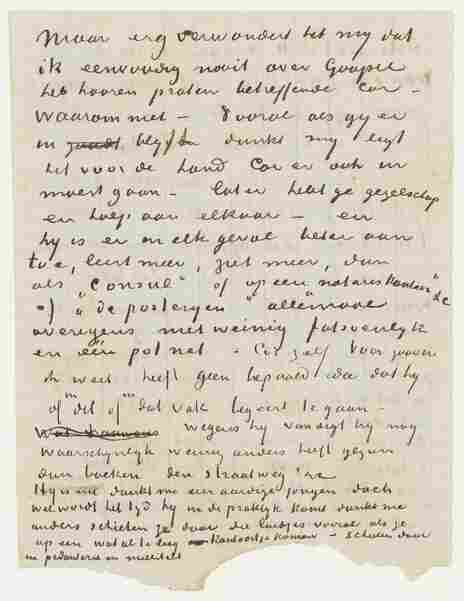 Maar erg verwondert het my dat
ik eenvoudig nooit over Goupil
heb hooren praten betreffende Cor –
Waarom niet – Vooral als gy er
in blyft dunkt my ligt
het voor de hand Cor er ook in
moest gaan – Later hebt ge gezelschap
en hulp aan elkaar – en
hy is er in elk geval beter aan
toe, leert meer, ziet meer, dan
als "Consul" of op een notaris kantoor &c
of "à de posteryen" allemaal
overigens niet weinig fatsoenlyk
en één pot nat – Cor zelf voor zoover
ik weet heeft geen bepaald idee dat hy
of in dit of in dat vak begeert te gaan –
wegens hy van zyn hy nog
waarschynlyk weinig anders heeft gezien
dan boeken den straatweg &c
Hy is me dunkt me een aardige jongen doch
wel wordt het tyd hy in de praktyk komt dunkt me
anders schieten ze door die luidjes vooral als ze
op een wat al te leeg kantoortje komen – schieten door
in pedanterie en nulliteit